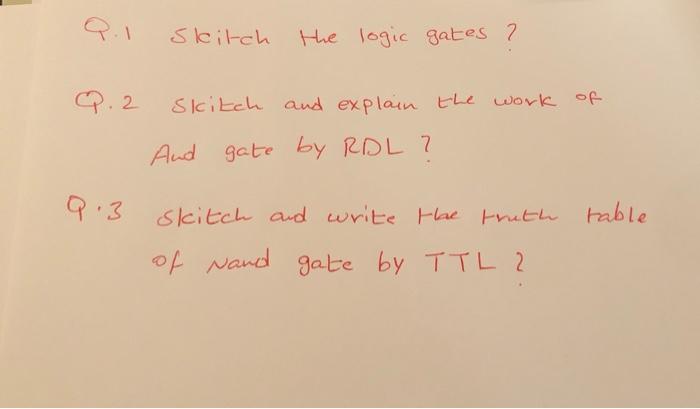 Q.1 Skitch the logic gates ?
Q.2 Skitch and explain the work of
And gate by RDL ?
Q.3 Skitch and write the truth table
of Nand gate by TTL ?